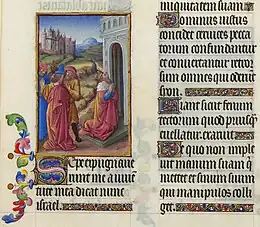 Sepe expugnaue
runt me a iuuen
tute mea dicat nunc
israel.
iniquitatem suam.
Dominus iustus
concidet ceruices pecca
torum confundantur
et conuertantur retror
sum omnes qui oderunt
sion.
Fiant sicut fenum
tectorum quod priusq̄
euellatur exaruit
De quo non imple
uit manum suam q̄
metet et sinum suum
qui manipulos colli
get.